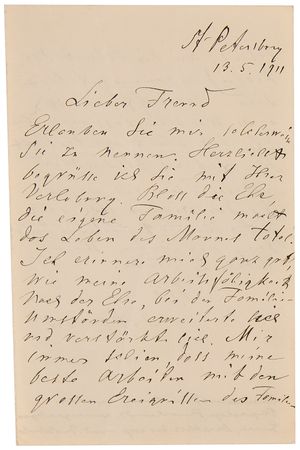 St Petersburg
13.5.1911
Lieber Freund
Erlauben Sie mir
Sie zu nennen. Herzlichst
begrüsse ich Sie mit Ihrer
Verlobung. Bloss die Ehe,
die eigene Familie macht
das Leben des Mannes total.
Ich erinnere mich ganz gut,
wie meine Arbeitsfähigkeit
nach der Ehe, bei den Familien
umständen erweiterte sich
und verstärkte sich. Mir
immer schien dass meine
beste Arbeiten mit den
grossen Ereignissen des Familien